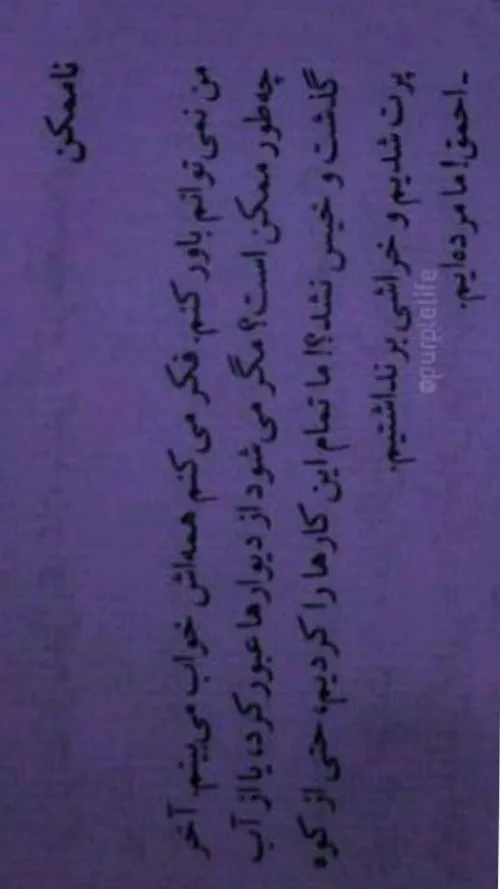 ناممکن
من نمی‌توانم باور کنم. فکر می‌کنم همه‌اش خواب می‌بینم. آخر
چه‌طور ممکن است؟ مگر می‌شود از دیوارها عبور کرد، یا از آب
گذشت و خیس نشد؟! ما تمام این کارها را کردیم، حتی از کوه
پرت شدیم و خراشی برنداشتیم.
- احمق! ما مرده‌ایم.
@purplelife